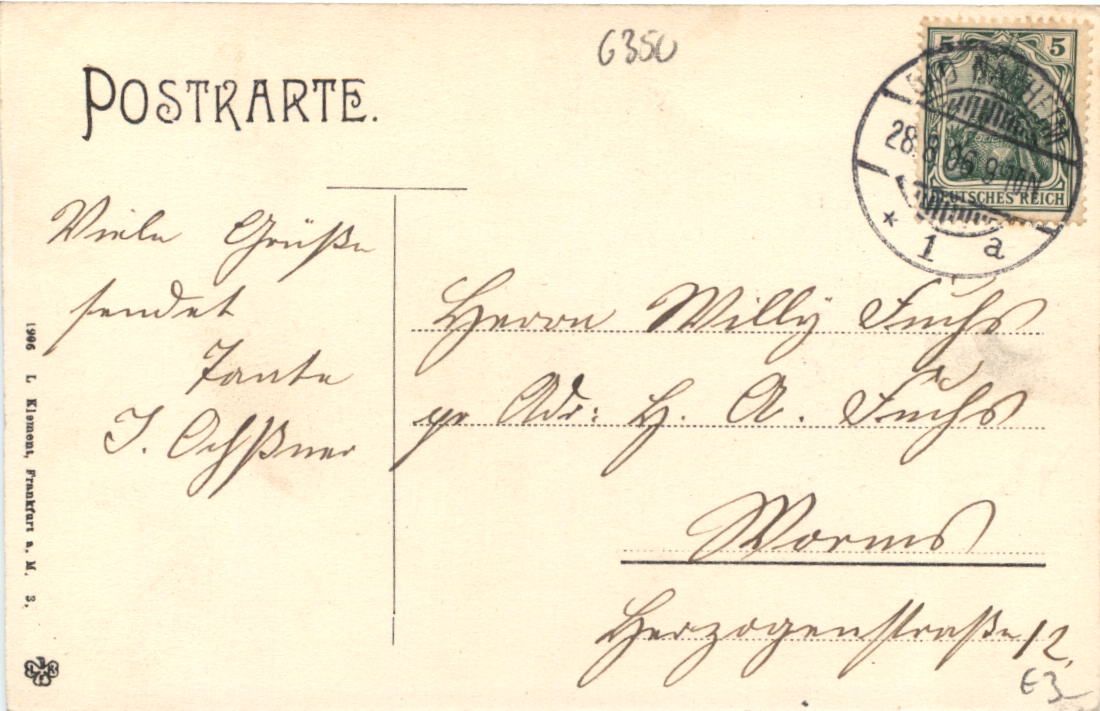 6350
POSTKARTE.
5 5
BAD NAUHEIM
28.8.06. 8-9
DEUTSCHES REICH
* 1 a
Viele Grüße
sendet
Tante
J. Ochßner
Herrn Willy Fuchs
pr Adr: H. A. Fuchs
Worms
Herzogenstraße 12.
1996 L Klement, Frankfurt a. M. 3.
E3